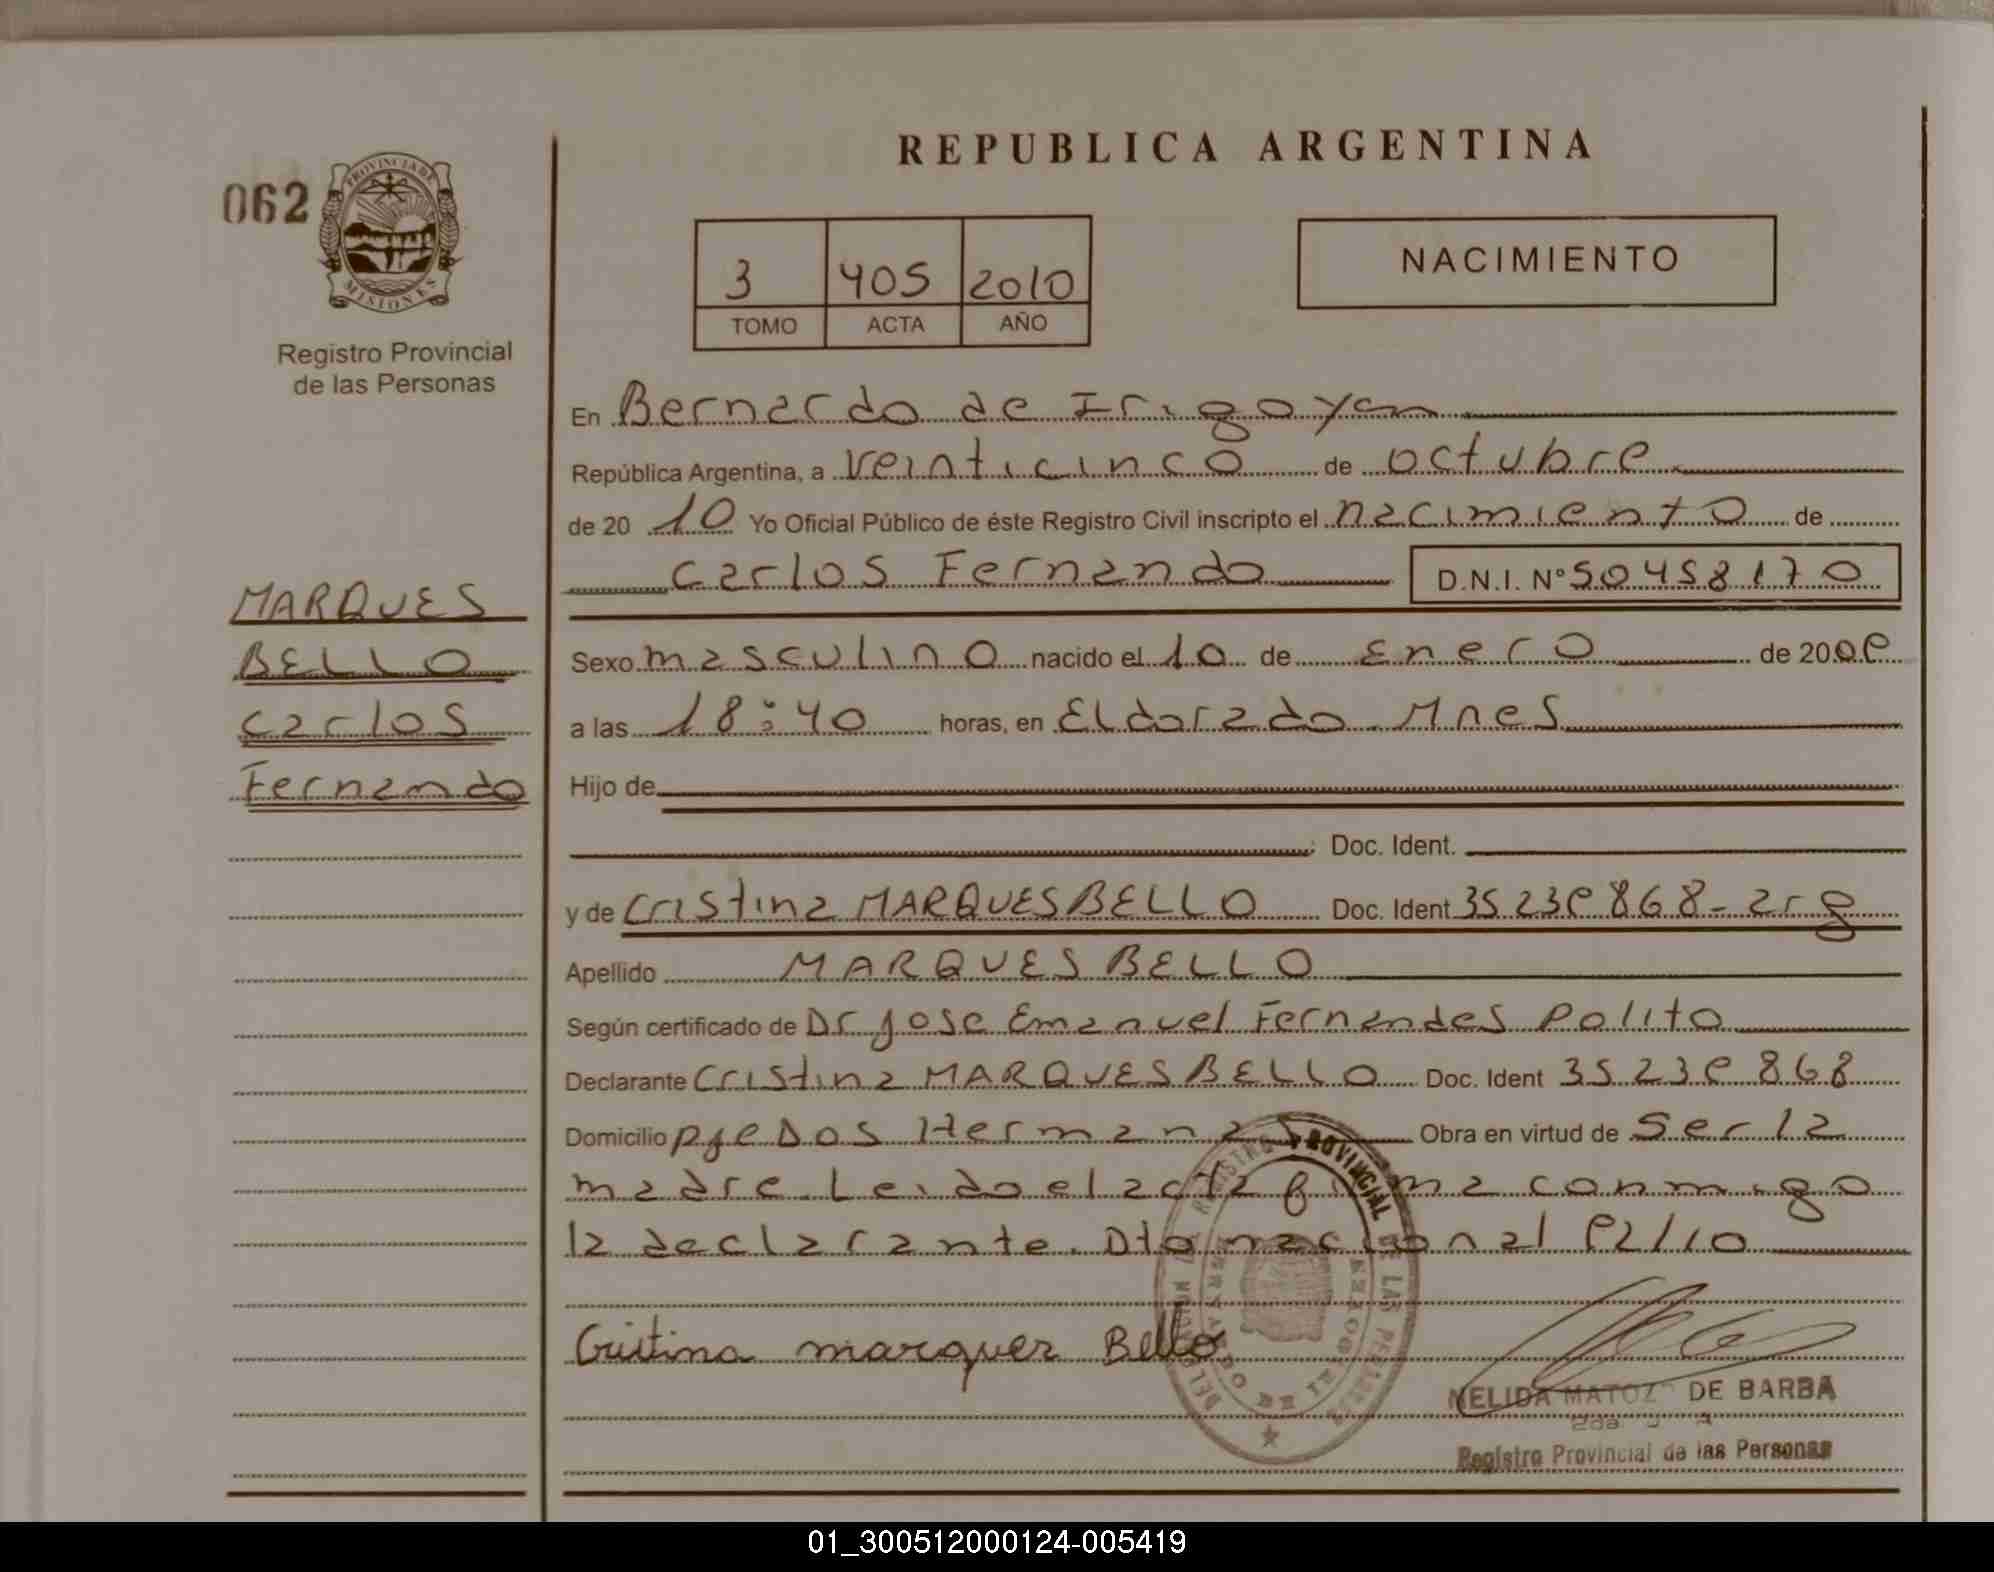 REPUBLICA ARGENTINA
062
PROVINCIA DE
MISIONES
Registro Provincial
de las Personas
3 405 2010
TOMO ACTA AÑO
NACIMIENTO
En Bernardo de Irigoyen
República Argentina, a veinticinco de octubre
de 20 10 Yo Oficial Público de éste Registro Civil inscripto el nacimiento de
Carlos Fernando D.N.I. N° 50458170
MARQUES
BELLO
Carlos
Fernando
Sexo masculino nacido el 10 de Enero de 2009
a las 18:40 horas, en Eldorado Mnes
Hijo de
Doc. Ident.
y de Cristina MARQUES BELLO Doc. Ident 35239868-arg
Apellido MARQUES BELLO
Según certificado de Dr Jose Emanuel Fernandes Polito
Declarante Cristina MARQUES BELLO Doc. Ident 35239868
Domicilio pje Dos Hermanas Obra en virtud de Ser la
madre. Leido el acta firma conmigo
la declarante. Dto nacional 92/10
Cristina marquez Bello
REGISTRO PROVINCIAL DE LAS PERSONAS
DELEGACION
BERNARDO DE IRIGOYEN
NELIDA MATOZO DE BARBA
Registro Provincial de las Personas
01_300512000124-005419